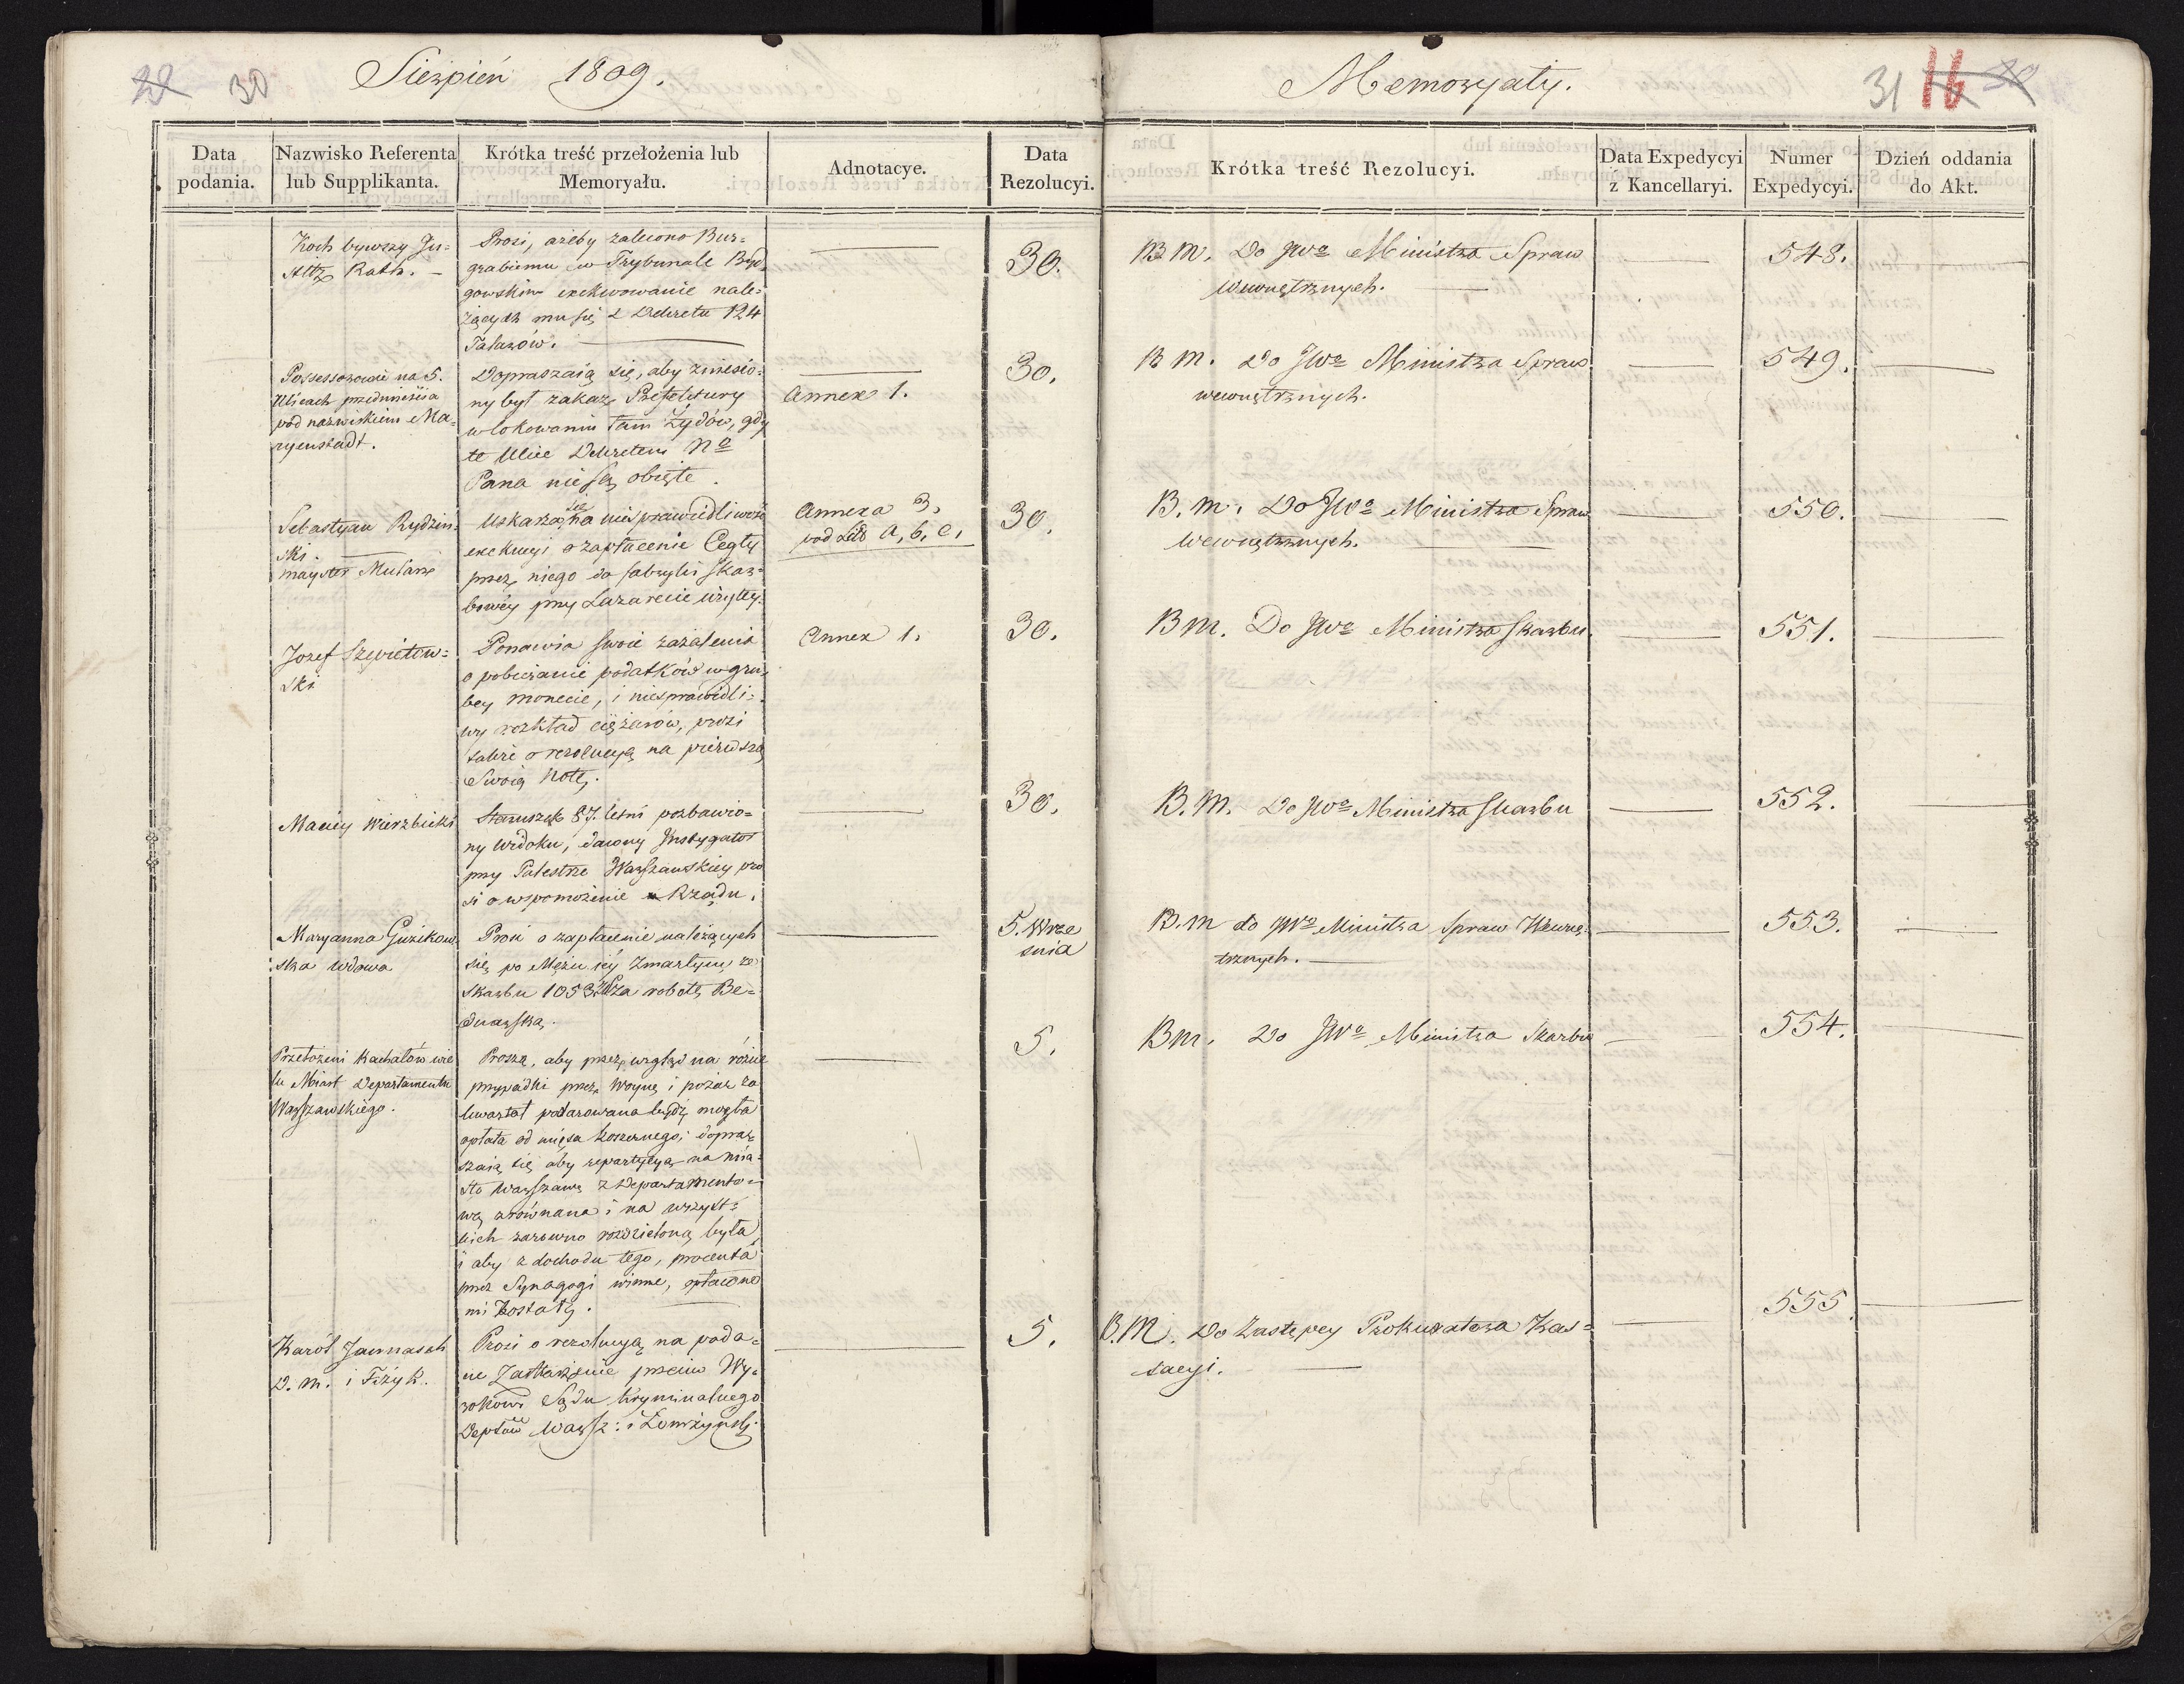 22 30 Sierpień 1809.
Memoryały. 31 16
Data podania.
Nazwisko Referenta lub Supplikanta.
Krótka treść przełożenia lub Memoryału.
Adnotacye.
Data Rezolucyi.
Krótka treść Rezolucyi.
Data Expedycyi z Kancellaryi.
Numer Expedycyi.
Dzień oddania do Akt.
Koch bywszy Ju=
stitz Rath. —
Prosi, ażeby zalecono Bur=
grabiemu w Trybunale Byd=
gowskim exekwowanie nale=
żących mu się z Dekretu 124
Talarów.
30.
B. M. Do JWo Ministra Spraw
wewnętrznych.
548.
Possessorowie na 5.
Ulicach przedmieścia
pod nazwiskiem Ma=
ryenstadt.
Dopraszaią się, aby zniesio=
ny był zakaz Prefektury
w lokowaniu tam Żydów, gdy
te Ulice Dekretem No
Pana nie są obięte.
Annex 1.
30.
B. M. Do JWo Ministra Spraw
wewnętrznych.
549.
Sebastyan Rydzin=
ski.
mayster Mularz
Uskarża się na niesprawiedliwość
exekucyi o zapłacenie Cegły
przez niego do fabryki skar=
bowéy przy Lazarecie użytéy.
Annexa 3.
pod Lit. a, b, c,
30.
B. M. Do JWo Ministra Spraw
Wewnętrznych.
550.
Jozef Szwietow=
ski
Ponawia swoie zażalenie
o pobieranie podatków w gru=
bey monecie, i niesprawiedli=
wy rozkład ciężarów, prosi
także o rezolucyą na pierwszą
Swoią Notę.
Annex 1.
30.
B M. Do JWo Ministra Skarbu.
551.
Maciéy Wierzbicki
Staruszek 87. letni pozbawio=
ny widoku, dawny Instygator
przy Palestrze Warszawskiey pro
si o wspomożenie Rządu.
30.
B. M. Do JWo Ministra Skarbu
552.
Maryanna Guzikow
ska wdowa
Prosi o zapłacenie należących
się po Mężu iéy zmarłym ze
Skarbu 1053 za robotę Be=
dnarską.
5. Wrze
snia
B. M do JWo Ministra Spraw Wewnę=
trznych.
553.
Przełożeni Kachałów wie
lu Miast Departamentu
Warszawskiego.
Proszą, aby przez wzgląd na różne
przypadki przez Woynę i pożar za
kwartał podarowana bydź mogła
opłata od mięsa koszernego; dopra=
szaią się aby repartycya na mia=
sto Warszawę z Departamento=
wą zrównana i na wszyst=
kich zarowno rozdzieloną była,
i aby z dochodu tego, procenta
przez Synagogi winne, opłacone
mi zostały.
5.
B M. Do JWo Ministra Skarbu
554.
Karól Jawnasch
D. M. i Fizyk.
Prosi o rezolucyą na poda=
ne Zaskarżenie przeciw Wy=
rokowi Sądu Kryminalnego
Deptów Warsz: i Łomżyńsk:
5.
B. M. Do Zastępcy Prokuratora Kas=
sacyi.
555.